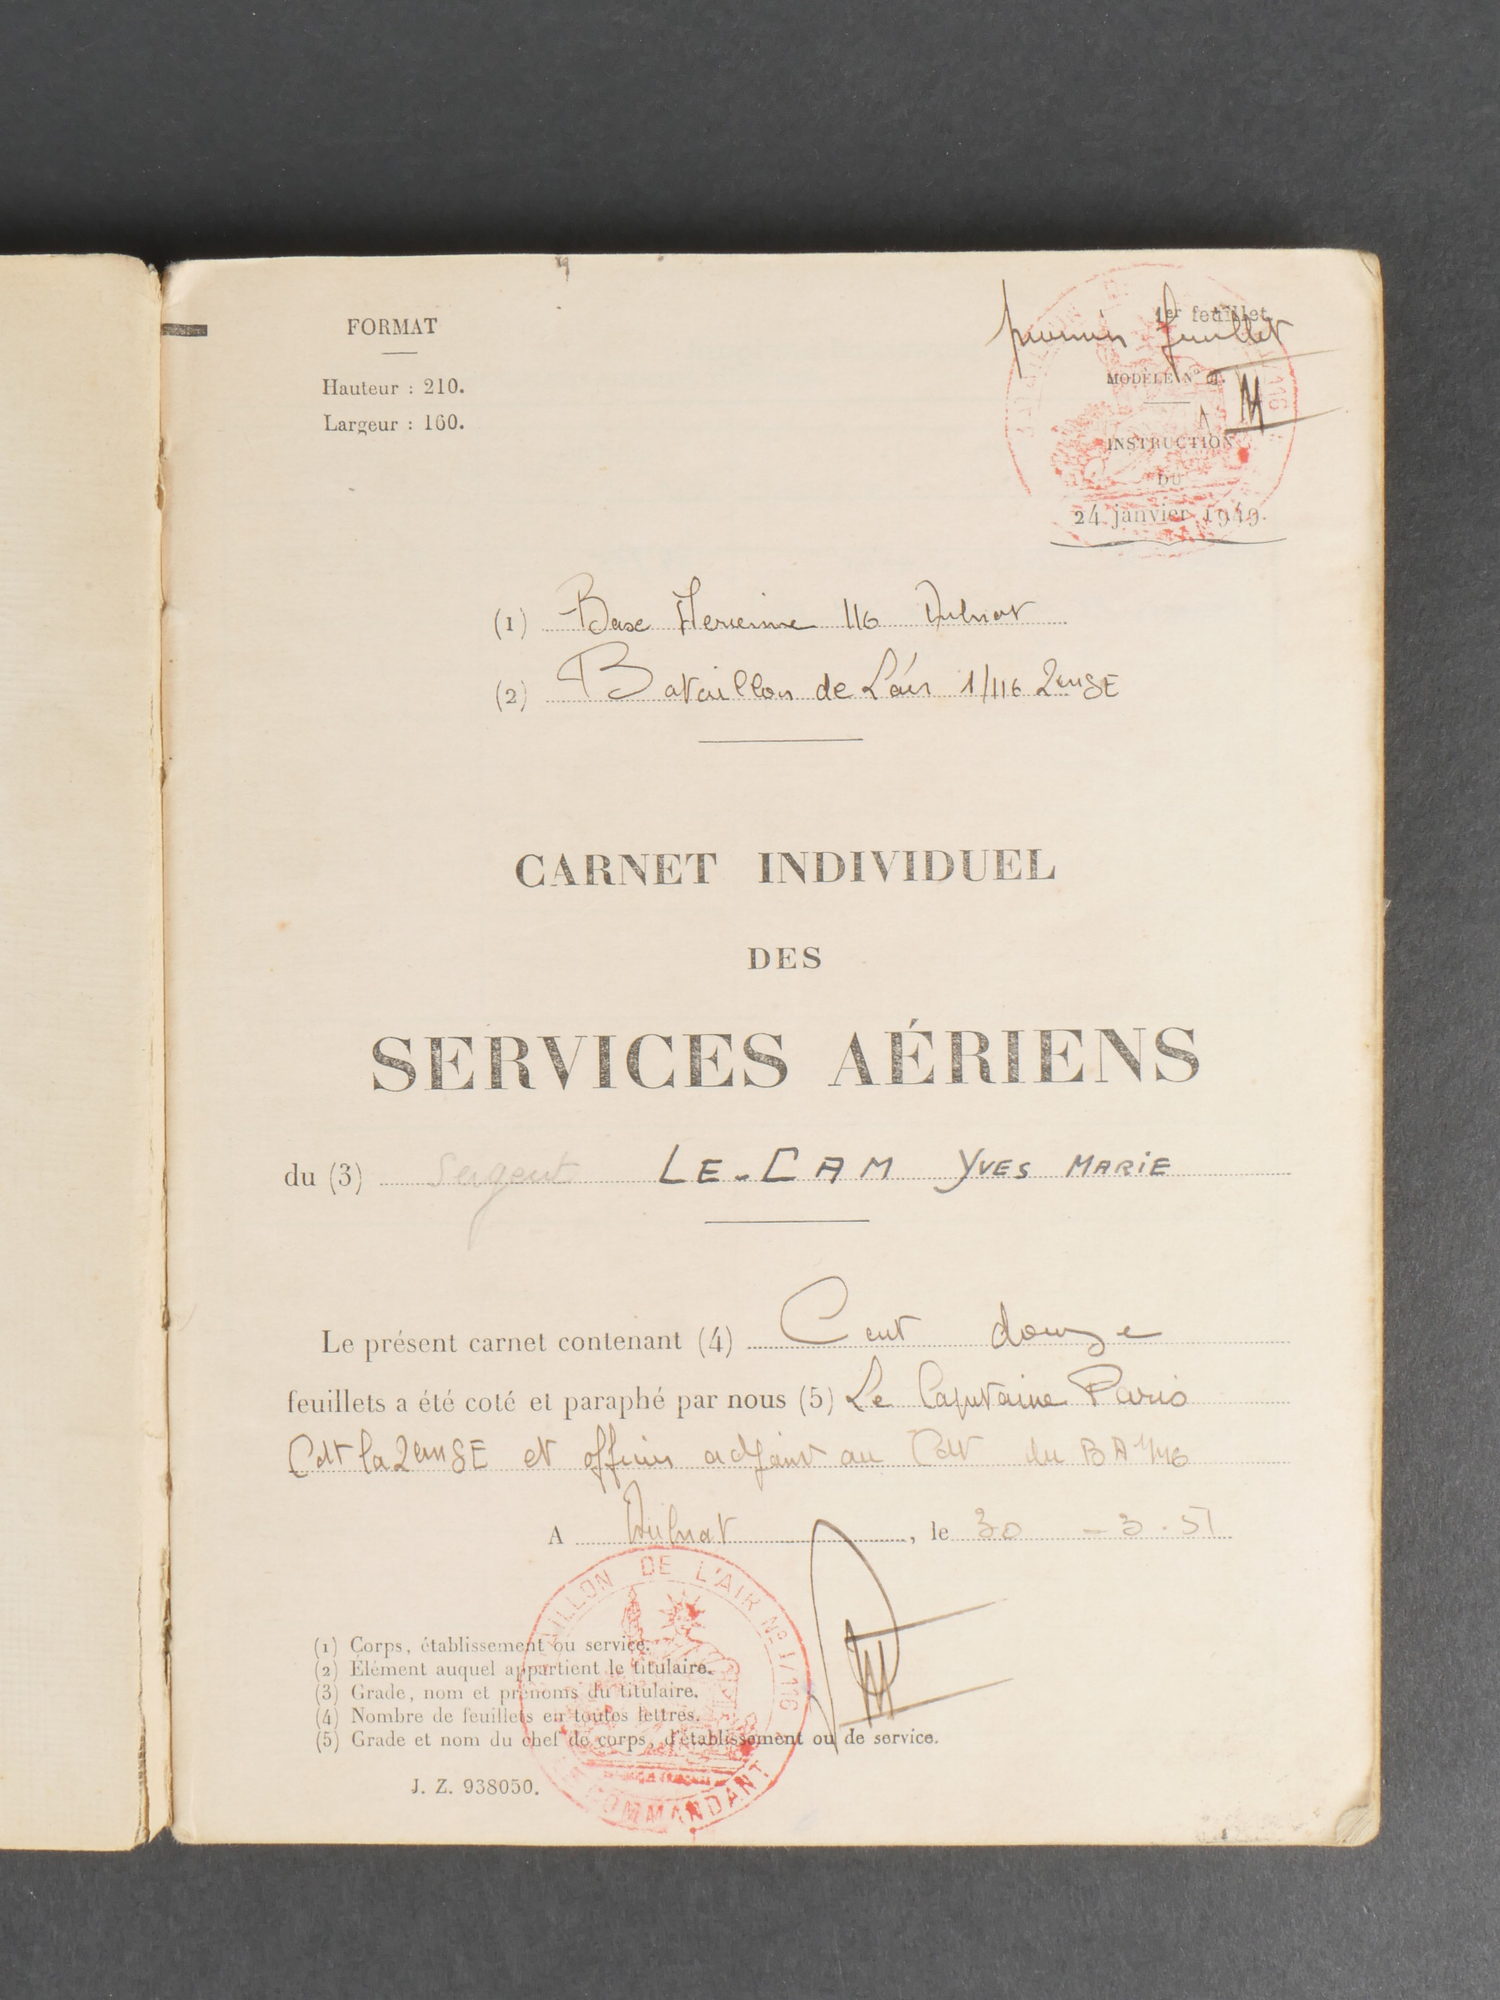 FORMAT
Hauteur : 210.
Largeur : 160.
1er feuillet
premier feuillet
MODÈLE N°
INSTRUCTION
DU
24 janvier 1949.
(1) Base Aerienne 116 Aulnat
(2) Bataillon de L'air 1/116 2emSE
CARNET INDIVIDUEL
DES
SERVICES AÉRIENS
du (3) Sergent LE-CAM YVES MARIE
Le présent carnet contenant (4) Cent douze
feuillets a été coté et paraphé par nous (5) Le Capitaine Paris
Cdt la 2emSE et officier adjoint au Cdt du BA 1/116
A Aulnat, le 30 - 3 . 51
BATAILLON DE L'AIR No 1/116
(1) Corps, établissement ou service.
(2) Élément auquel appartient le titulaire.
(3) Grade, nom et prénoms du titulaire.
(4) Nombre de feuillets en toutes lettres.
(5) Grade et nom du chef de corps, d'établissement ou de service.
COMMANDANT
J. Z. 938050.